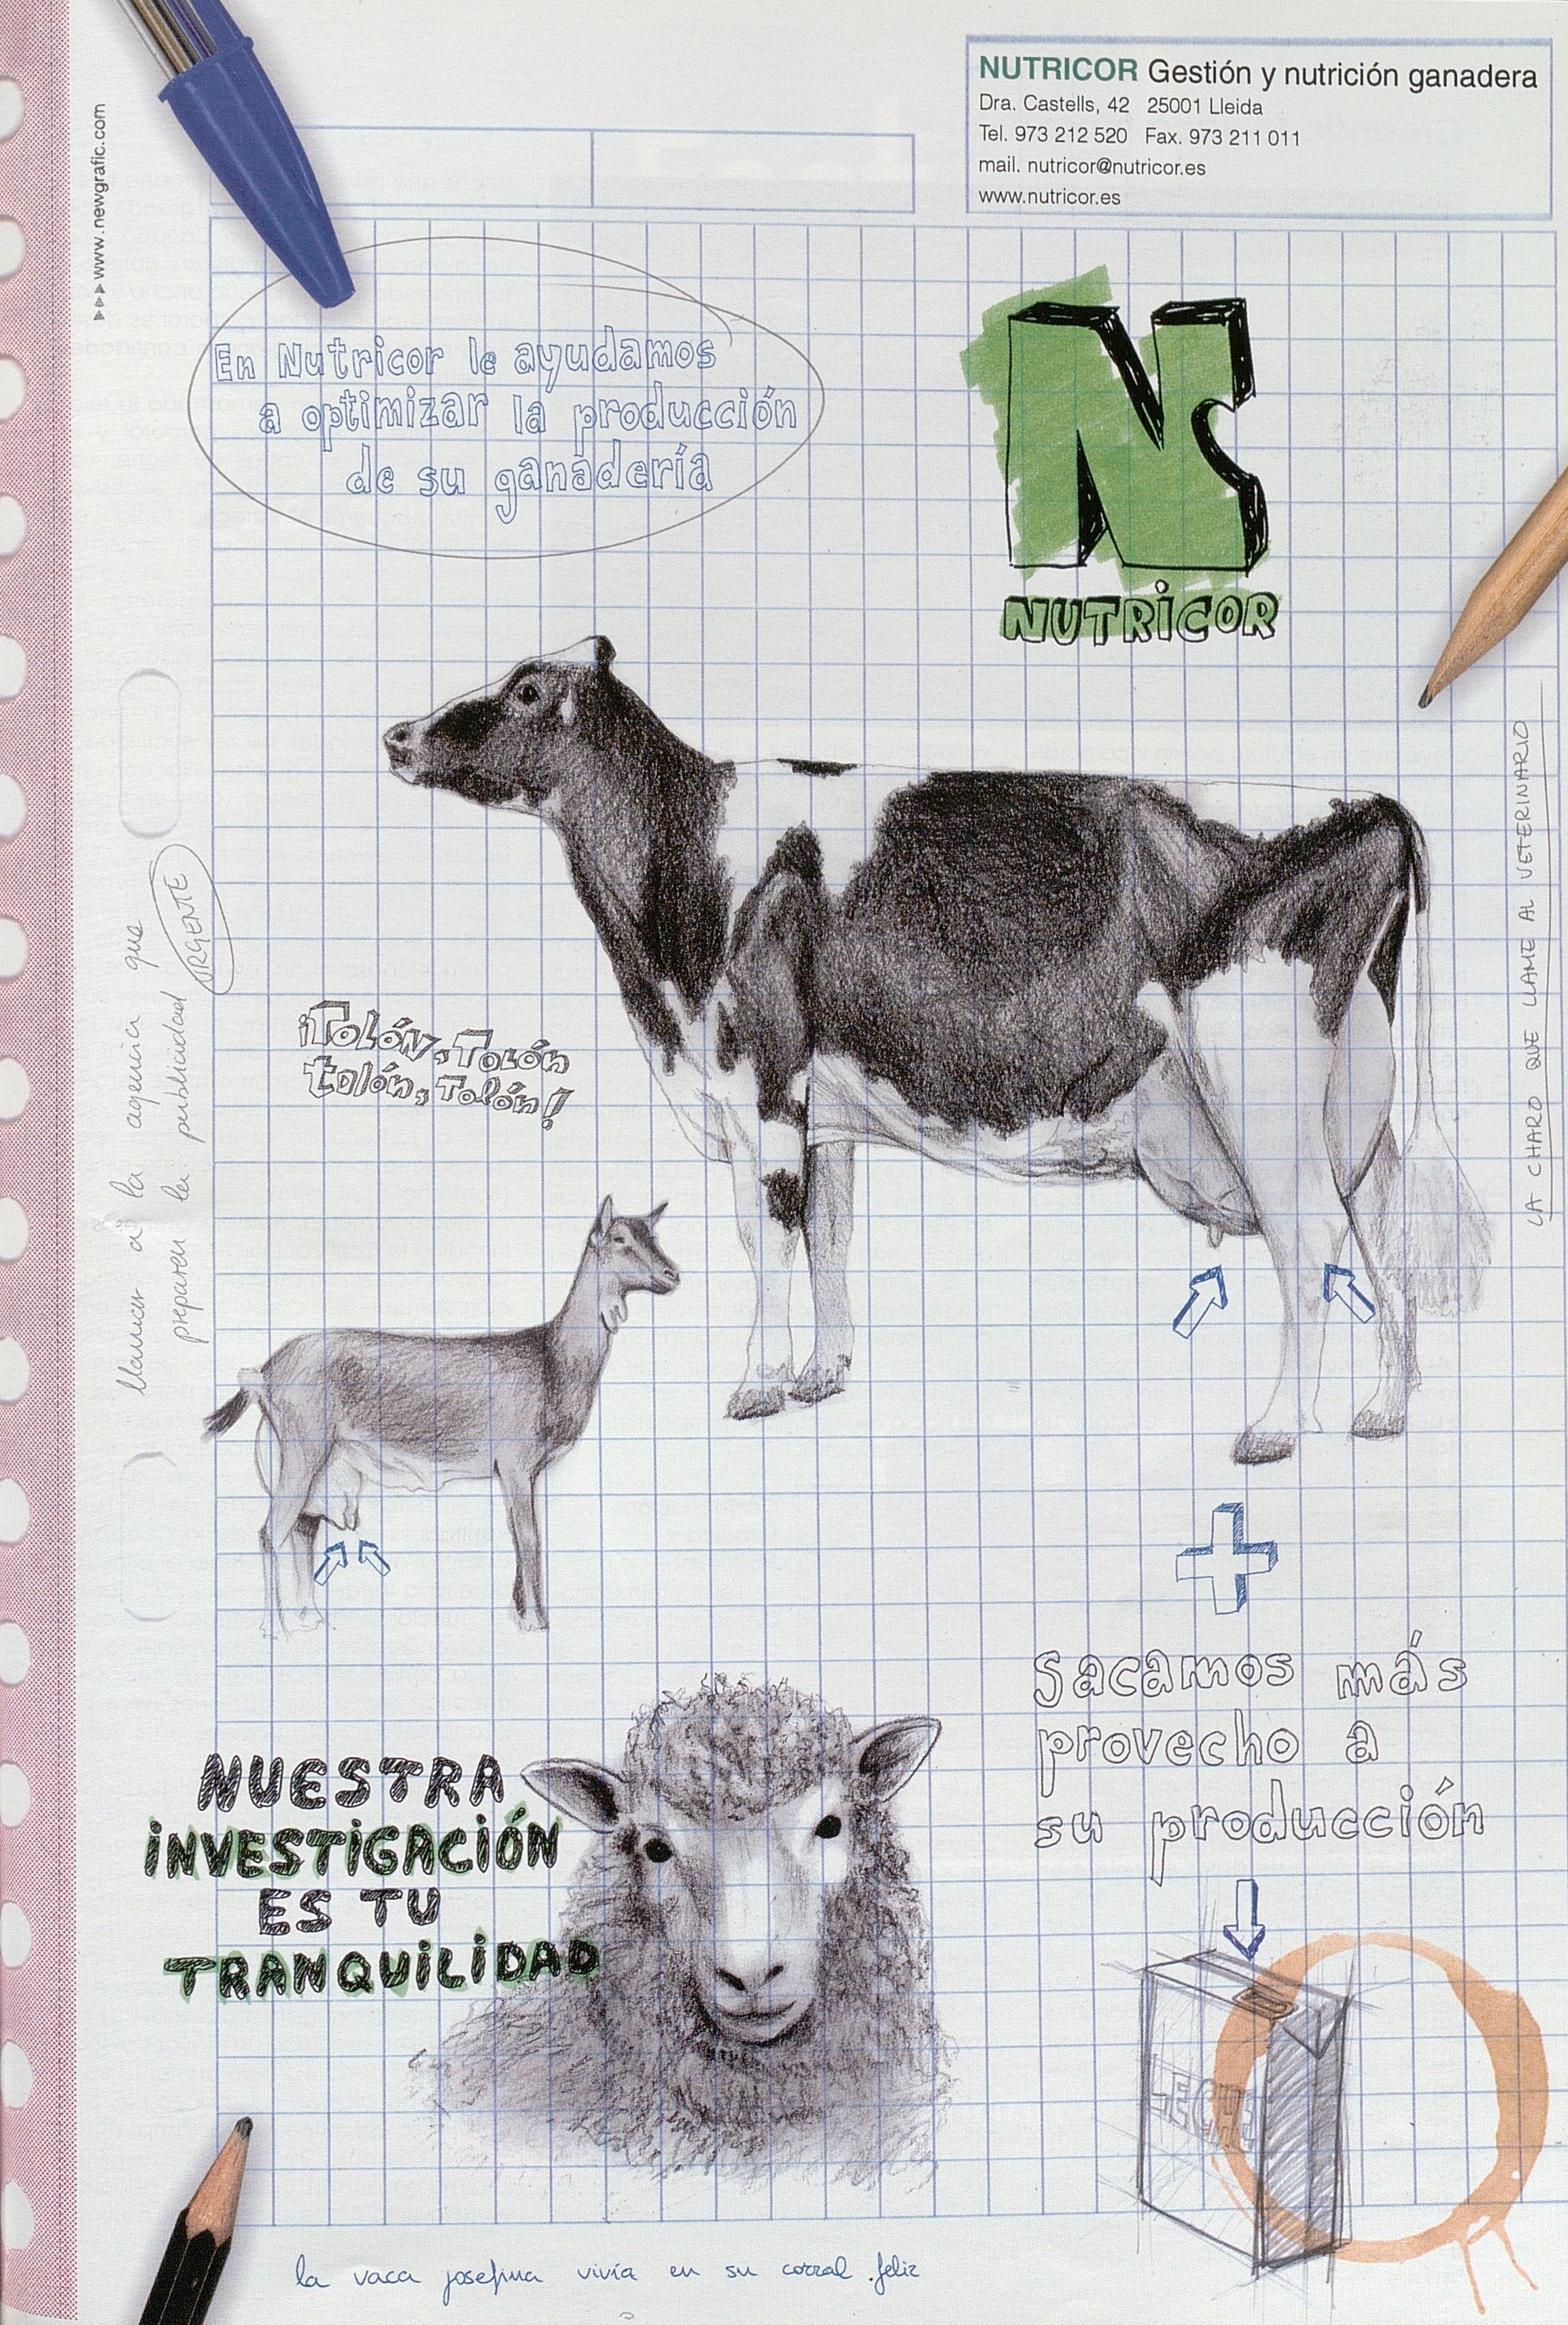 NUTRICOR Gestión y nutrición ganadera
Dra. Castells, 42 25001 Lleida
Tel. 973 212 520 Fax. 973 211 011
mail. nutricor@nutricor.es
www.nutricor.es
www.newgrafic.com
En Nutricor le ayudamos
a optimizar la producción
de su ganadería
N
NUTRiCOR
LA CHARO QUE LLAME AL VETERINARIO
llamar a la agencia que
preparen la publicidad URGENTE
¡Tolón, Tolón
tolón, Tolón!
+
Sacamos más
provecho a
su producción
NUESTRA
iNVESTiGACiÓN
ES TU
TRANQUiLiDAD
LECHE
la vaca josefina vivía en su corral feliz